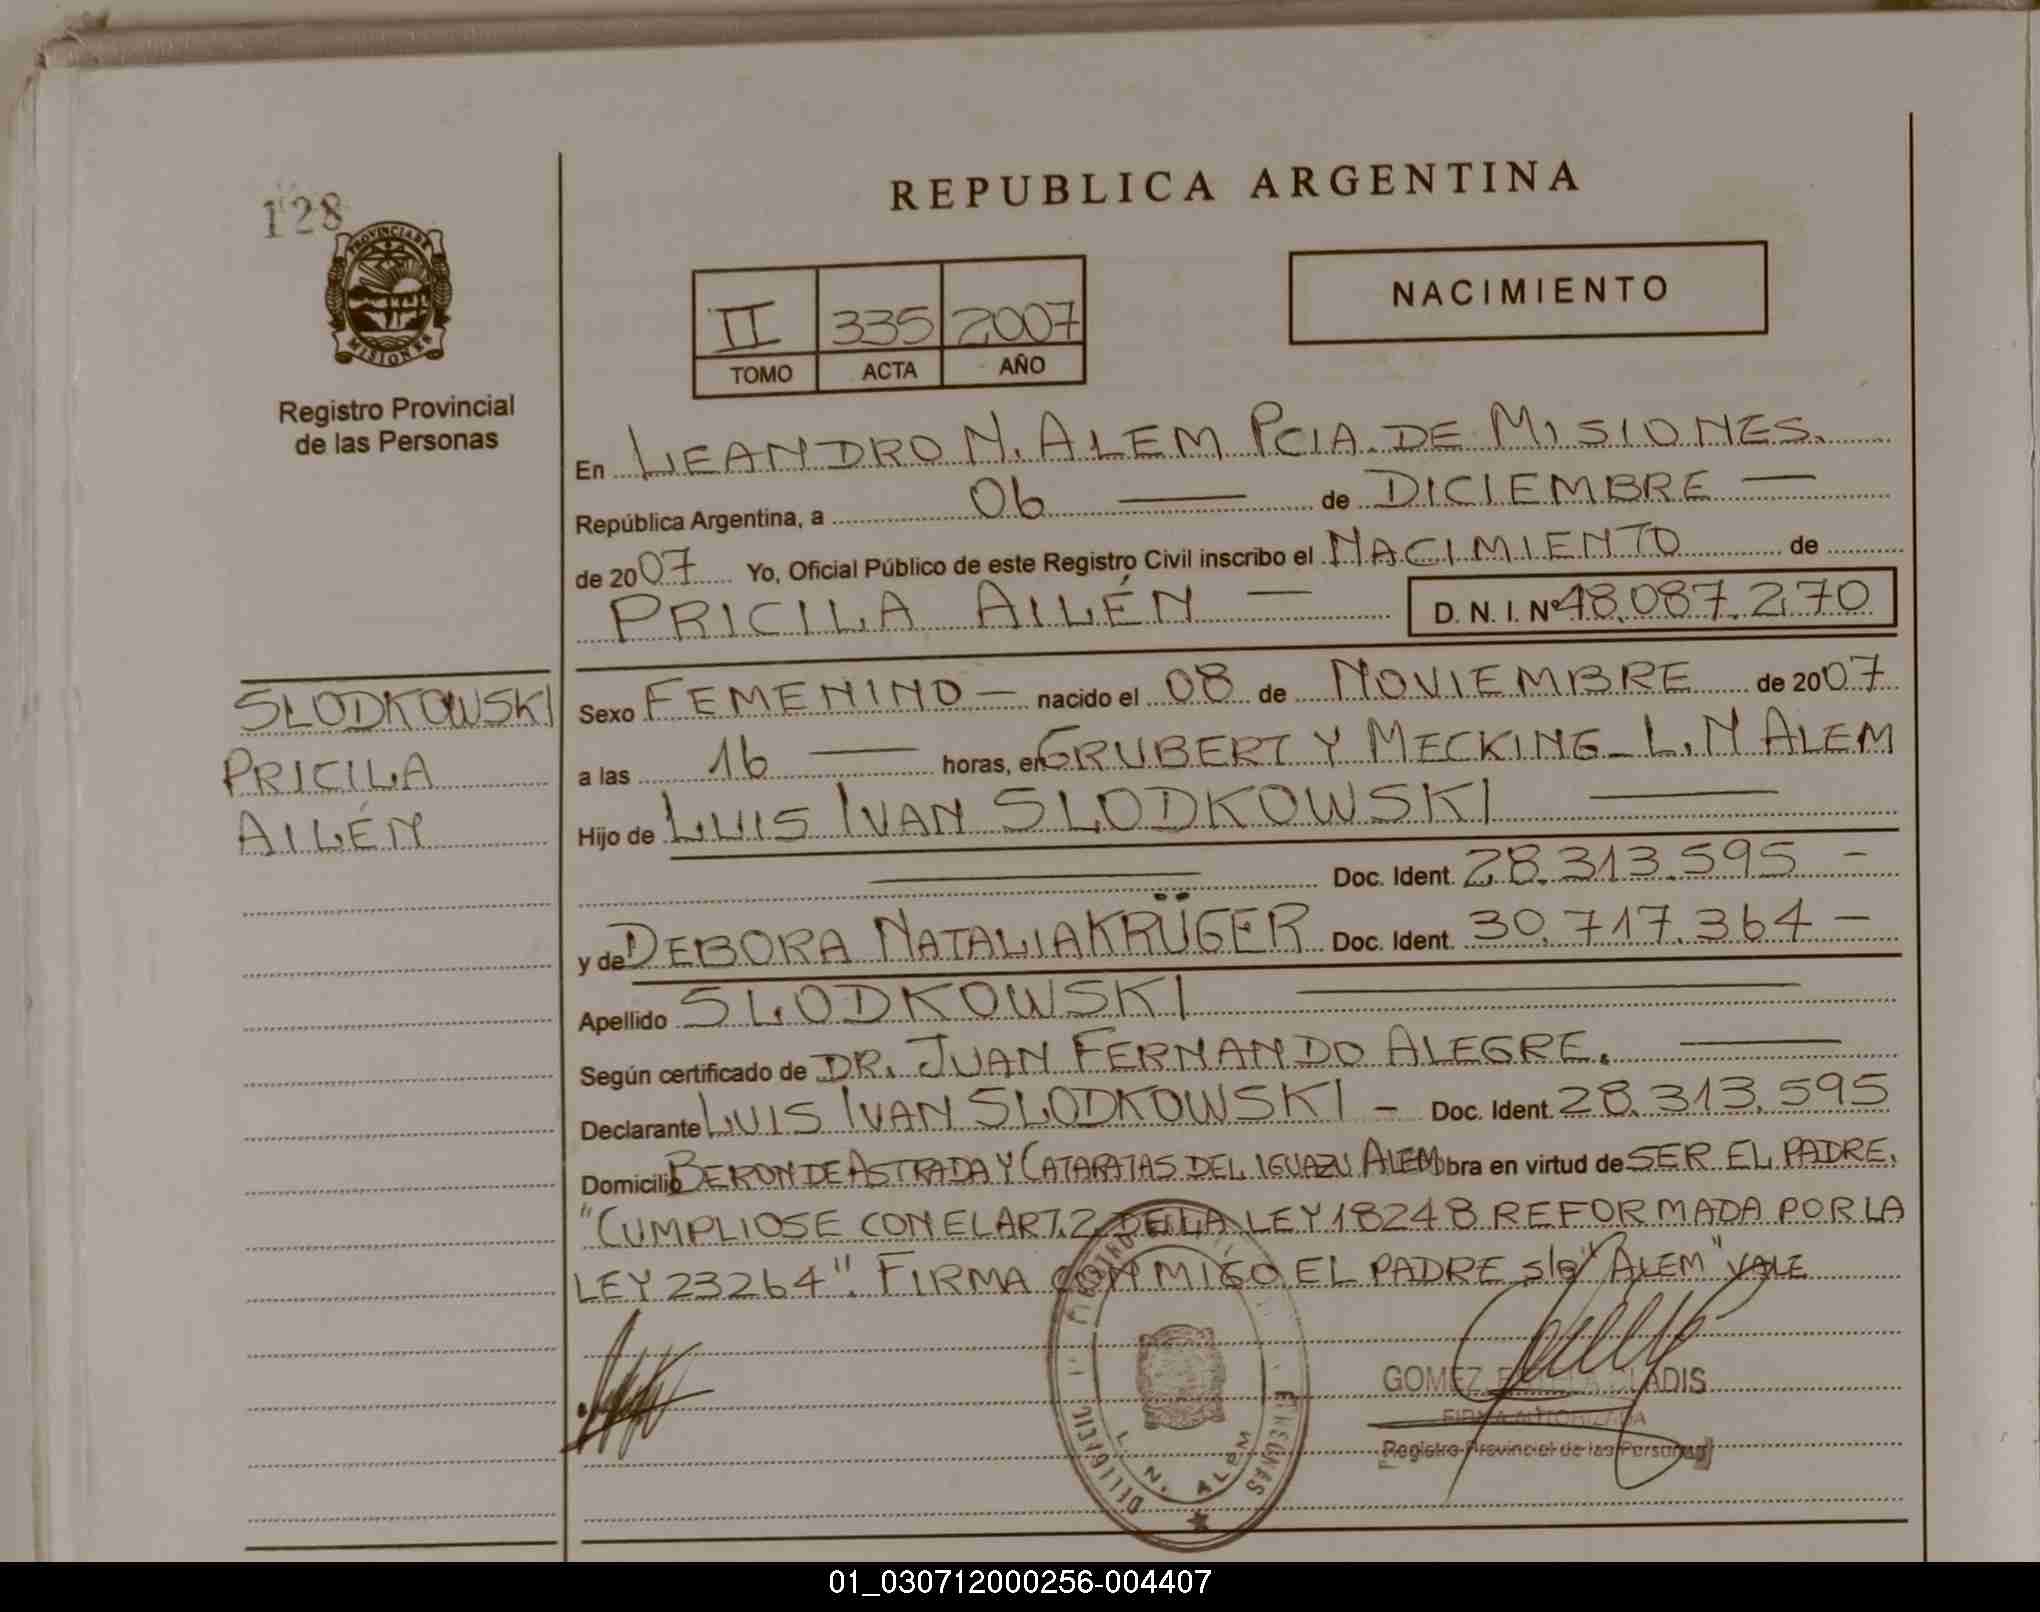 128
PROVINCIA DE
MISIONES
Registro Provincial
de las Personas
REPUBLICA ARGENTINA
II 335 2007
TOMO ACTA AÑO
NACIMIENTO
En LEANDRO N. ALEM PCIA. DE MISIONES.
República Argentina, a 06 — de DICIEMBRE —
de 2007 Yo, Oficial Público de este Registro Civil inscribo el NACIMIENTO de
PRICILA AILÉN — D. N. I. Nº 48.087.270
SLODKOWSKI
PRICILA
AILÉN
Sexo FEMENINO — nacido el 08 de NOVIEMBRE de 2007
a las 16 — horas, en GRUBERT Y MECKING - L. N ALEM
Hijo de LUIS IVAN SLODKOWSKI —
— Doc. Ident. 28.313.595 —
y de DEBORA NATALIA KRÜGER Doc. Ident. 30.717.364 —
Apellido SLODKOWSKI —
Según certificado de DR. JUAN FERNANDO ALEGRE. —
Declarante LUIS IVAN SLODKOWSKI — Doc. Ident. 28.313.595
Domicilio BERON DE ASTRADA Y CATARATAS DEL IGUAZU ALEM bra en virtud de SER EL PADRE.
"CUMPLIOSE CON EL ART. 2 DE LA LEY 18248 REFORMADA POR LA
LEY 23264". FIRMA CONMIGO EL PADRE s/e "ALEM" VALE
L. N. ALEM
GOMEZ GLADIS
FIRMA AUTORIZADA
Registro Provincial de las Personas
01_030712000256-004407